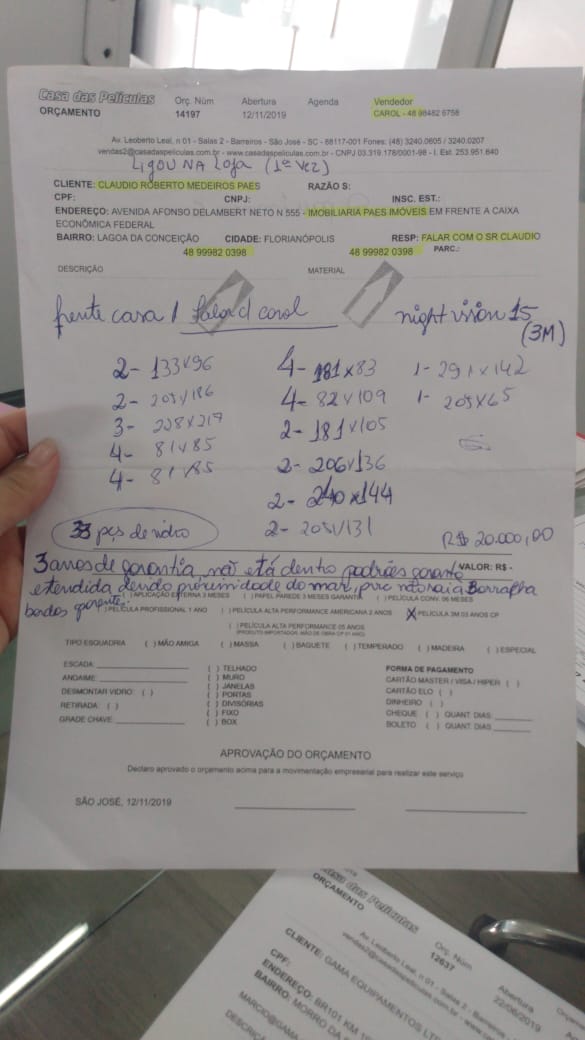 Casa das Películas
ORÇAMENTO
Orç. Núm
14197
Abertura
12/11/2019
Agenda
Vendedor
CAROL - 48 98482 6758
Av. Leoberto Leal, n 01 - Salas 2 - Barreiros - São José - SC - 88117-001 Fones: (48) 3240.0605 / 3240.0207
vendas2@casadaspeliculas.com.br - www.casadaspeliculas.com.br - CNPJ 03.319.178/0001-98 - I. Est. 253.951.640
LigOU NA Loja (1ª VEZ)
CLIENTE: CLAUDIO ROBERTO MEDEIROS PAES RAZÃO S:
CPF: CNPJ: INSC. EST.:
ENDEREÇO: AVENIDA AFONSO DELAMBERT NETO N 555 - IMOBILIARIA PAES IMÓVEIS EM FRENTE A CAIXA
ECONÔMICA FEDERAL
BAIRRO: LAGOA DA CONCEIÇÃO CIDADE: FLORIANÓPOLIS RESP: FALAR COM O SR CLAUDIO
48 99982 0398 48 99982 0398 PARC.:
DESCRIÇÃO MATERIAL
frente casa / Falar c/ carol night vision 15
(3M)
2- 133x96 4- 181x83 1- 291x142
2- 205x186 4- 82x109 1- 205x65
3- 228x217 2- 181x105
4- 81x85 2- 206x136
4- 81x85 2- 240x144
33 pçs de vidro 2- 205x131 R$ 20.000,00
3 anos de garantia não etá dentro padrões garantia VALOR: R$ -
etendida devido proximidade do mar, Borracha
bordos garante.
( )APLICAÇÃO EXTERNA 3 MESES ( ) PAPEL PAREDE 3 MESES GARANTIA ( ) PELÍCULA CONV. 06 MESES
( )PELÍCULA PROFISSIONAL 1 ANO ( )PELÍCULA ALTA PERFORMANCE AMERICANA 2 ANOS X PELICULA 3M 03 ANOS CP
( )PELÍCULA ALTA PERFORMANCE 05 ANOS
(PRODUTO IMPORTADOR, MÃO DE OBRA CP 01 ANO)
TIPO ESQUADRIA ( ) MÃO AMIGA ( ) MASSA ( )BAGUETE ( ) TEMPERADO ( ) MADEIRA ( )ESPECIAL
ESCADA:
ANDAIME:
DESMONTAR VIDRO: ( )
RETIRADA: ( )
GRADE CHAVE:
( ) TELHADO
( ) MURO
( ) JANELAS
( ) PORTAS
( ) DIVISÓRIAS
( ) FIXO
( ) BOX
FORMA DE PAGAMENTO
CARTÃO MASTER / VISA / HIPER ( )
CARTÃO ELO ( )
DINHEIRO ( )
CHEQUE ( ) QUANT. DIAS:
BOLETO ( ) QUANT. DIAS:
APROVAÇÃO DO ORÇAMENTO
Declaro aprovado o orçamento acima para a movimentação empresarial para realizar este serviço
SÃO JOSÉ, 12/11/2019
Casa das Películas
ORÇAMENTO
Orç. Núm
12637
Abertura
22/08/2019
Av. Leoberto Leal, n 01 - Salas 2 - Barreiros
vendas2@casadaspeliculas.com.br
CLIENTE: GAMA EQUIPAMENTOS LT
CPF:
ENDEREÇO: BR101 KM
BAIRRO: MORRO DA
MARCIO@GAMA